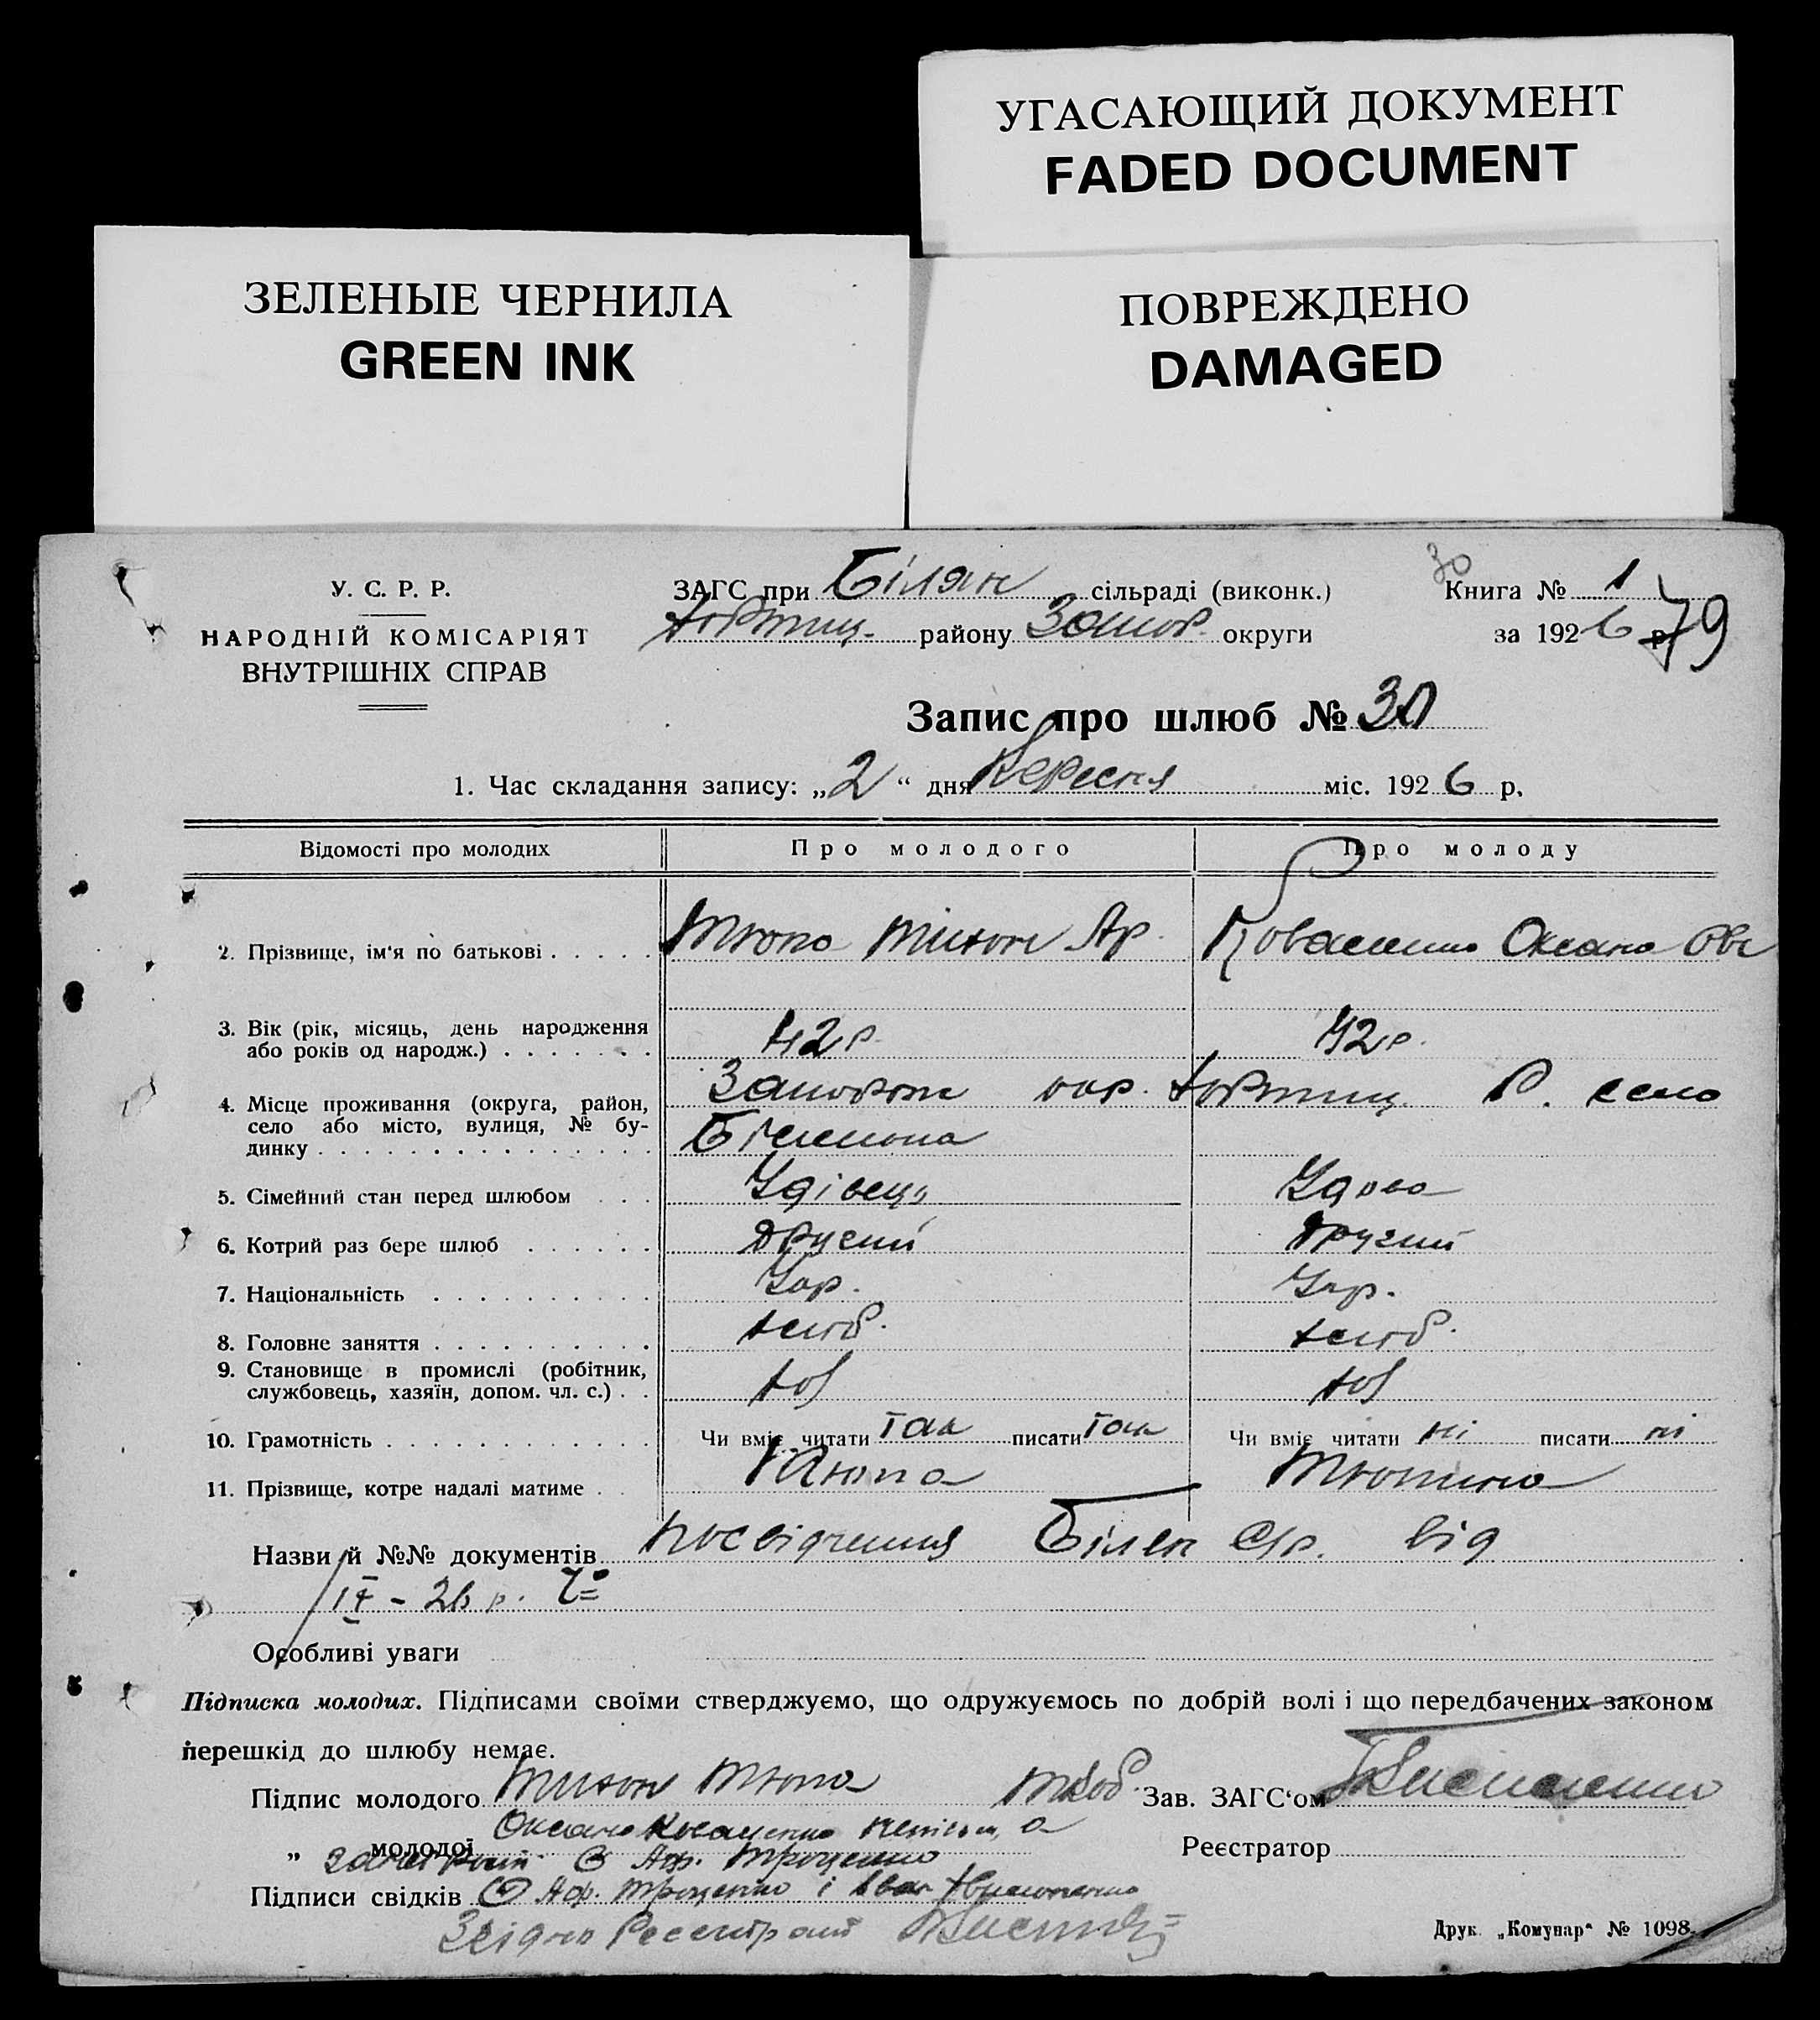 УГАСАЮЩИЙ ДОКУМЕНТ
FADED DOCUMENT
ЗЕЛЕНЫЕ ЧЕРНИЛА
GREEN INK
ПОВРЕЖДЕНО
DAMAGED
30
У. С. Р. Р.
НАРОДНІЙ КОМІСАРІЯТ
ВНУТРІШНІХ СПРАВ
ЗАГС при Білян сільраді (виконк.) Книга № 1
Хортиц. району Запор. округи за 1926 р. 79
Запис про шлюб № 30
1. Час складання запису: „2“ дня Вересня міс. 1926 р.
Відомості про молодих Про молодого Про молоду
2. Прізвище, ім'я по батькові Тюпа Тихон Ар. Оксана
3. Вік (рік, місяць, день народження
або років од народж.) 42 р. 42 р.
4. Місце проживання (округа, район,
село або місто, вулиця, № бу-
динку Запорож окр. Хортиц. Р. село
5. Сімейний стан перед шлюбом Удівець Удова
6. Котрий раз бере шлюб Другий Другий
7. Національність Укр. Укр.
8. Головне заняття хліб. хліб.
9. Становище в промислі (робітник,
службовець, хазяїн, допом. чл. с.) хоз хоз
10. Грамотність Чи вміє читати так писати так Чи вміє читати ні писати ні
11. Прізвище, котре надалі матиме Тюпа
Назви й №№ документів посвідчення Білен с/р. від
Особливі уваги
Підписка молодих. Підписами своїми стверджуємо, що одружуємось по добрій волі і що передбачених законом
перешкід до шлюбу немає.
Підпис молодого Тихон Тюпа Зав. ЗАГС'ом
Оксана
„ молодої Троценко Реєстратор
Підписи свідків Троценко і
Друк. „Комунар“ № 1098.